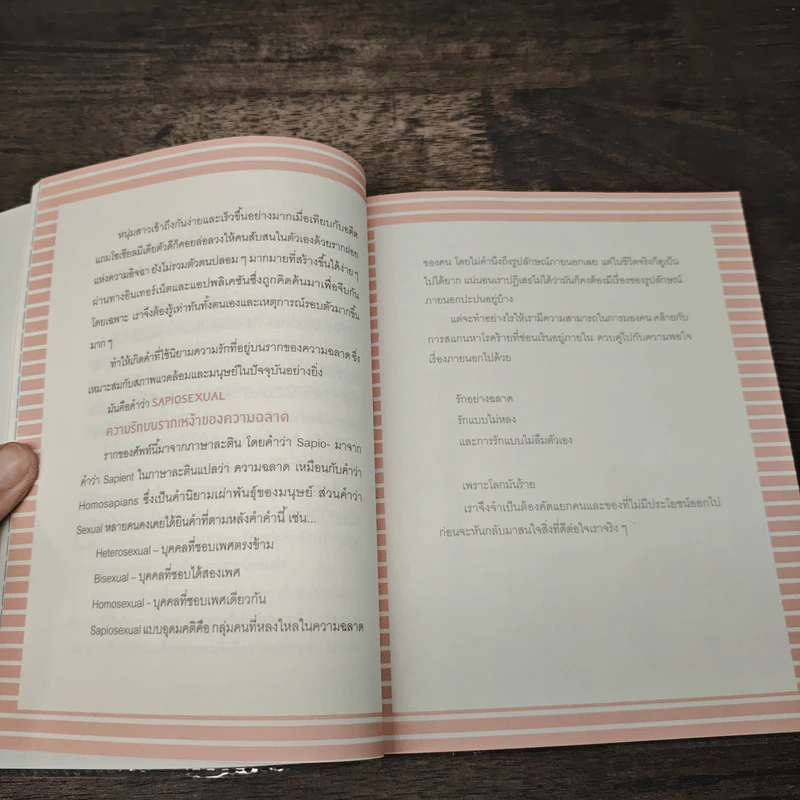 หนุ่มสาวเข้าถึงกันง่ายและเร็วขึ้นอย่างมากเมื่อเทียบกับอดีต
แถมโซเชียลมีเดียตัวดีก็คอยล่อลวงให้คนสับสนในตัวเองด้วยรากฝอย
แห่งความอิจฉา ยังไม่รวมตัวตนปลอม ๆ มากมายที่สร้างขึ้นได้ง่าย ๆ
ผ่านทางอินเทอร์เน็ตและแอปพลิเคชันซึ่งถูกคิดค้นมาเพื่อจีบกัน
โดยเฉพาะ เราจึงต้องรู้เท่าทันทั้งตนเองและเหตุการณ์รอบตัวมากขึ้น
มาก ๆ
ทำให้เกิดคำที่ใช้นิยามความรักที่อยู่บนรากของความฉลาด ซึ่ง
เหมาะสมกับสภาพแวดล้อมและมนุษย์ในปัจจุบันอย่างยิ่ง
มันคือคำว่า SAPIOSEXUAL
ความรักบนรากเหง้าของความฉลาด
รากของศัพท์นี้มาจากภาษาละติน โดยคำว่า Sapio- มาจาก
คำว่า Sapient ในภาษาละตินแปลว่า ความฉลาด เหมือนกับคำว่า
Homosapians ซึ่งเป็นคำนิยามเผ่าพันธุ์ของมนุษย์ ส่วนคำว่า
Sexual หลายคนคงเคยได้ยินคำที่ตามหลังคำคำนี้ เช่น...
Heterosexual – บุคคลที่ชอบเพศตรงข้าม
Bisexual – บุคคลที่ชอบได้สองเพศ
Homosexual - บุคคลที่ชอบเพศเดียวกัน
Sapiosexual แบบอุดมคติคือ กลุ่มคนที่หลงใหลในความฉลาด
ของคน โดยไม่คำนึงถึงรูปลักษณ์ภายนอกเลย แต่ในชีวิตจริงก็ดูเป็น
ไปได้ยาก แน่นอนเราปฏิเสธไม่ได้ว่ามันก็คงต้องมีเรื่องของรูปลักษณ์
ภายนอกปะปนอยู่บ้าง
แต่จะทำอย่างไรให้เรามีความสามารถในการมองคน คล้ายกับ
การสแกนหาโรคร้ายที่ซ่อนเร้นอยู่ภายใน ควบคู่ไปกับความพอใจ
เรื่องภายนอกไปด้วย
รักอย่างฉลาด
รักแบบไม่หลง
และการรักแบบไม่ลืมตัวเอง
เพราะโลกมันร้าย
เราจึงจำเป็นต้องคัดแยกคนและของที่ไม่มีประโยชน์ออกไป
ก่อนจะหันกลับมาสนใจสิ่งที่ดีต่อใจเราจริง ๆ